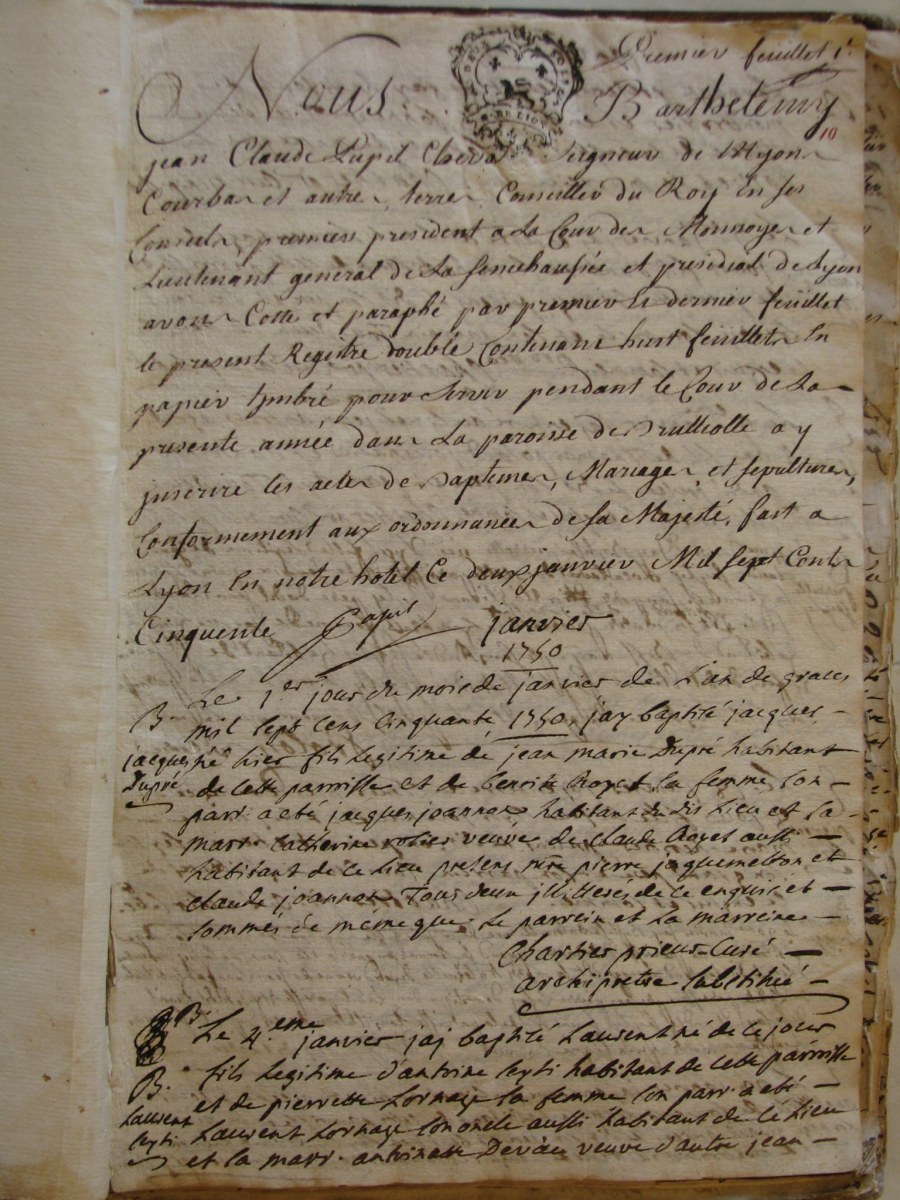 Premier feuillet 1er
Nous Barthelemy
10
jean Claude Pupil Chevalier Seigneur de Myons
Courbas et autres terres, Conseiller du Roy en ses
Conseils, premier president a La Cour des Monnoyes et
Lieutenant general de La senechaussée et presidial de Lyon
avons Cotté et paraphé par premier et dernier feuillet
le present Registre double Contenant huit feuillets En
papier timbré pour servir pendant le Cour de La
presente année dans La paroisse de a y
inscrire les actes de Baptemes, Mariages, et sepultures,
Conformement aux ordonnances de sa Majesté, fait a
Lyon En notre hotel Ce deux janvier Mil sept Cents
Cinquante Pupil janvier
1750
Le 1er jour du mois de janvier de L'an de graces
B. mil sept cens cinquante, 1750, jay baptisé jacques
jacques Dupré
né hier fils legitime de jean marie Dupré habitant
de cette parroisse et de benoite Royet sa femme son
parr. a eté jacques joannon habitant du dit Lieu et sa
marr. catherine veuve de claude Royet aussi
habitant de ce lieu presens pierre jaquemetton et
claude joannon Tous deux illitteres de ce enquis et
sommés de même que Le parrein et La marreine
Chartier prieur-Curé
archiprêtre substitué
B. Le 4.eme janvier jay baptisé Laurent né de ce jour
B. Laurent
fils legitime d'antoine habitant de cette parroisse
et de pierrette Lornage sa femme son parr. a eté
Laurent Lornage son oncle aussi habitant de ce Lieu
et sa marr. antoinette veuve d'autre jean